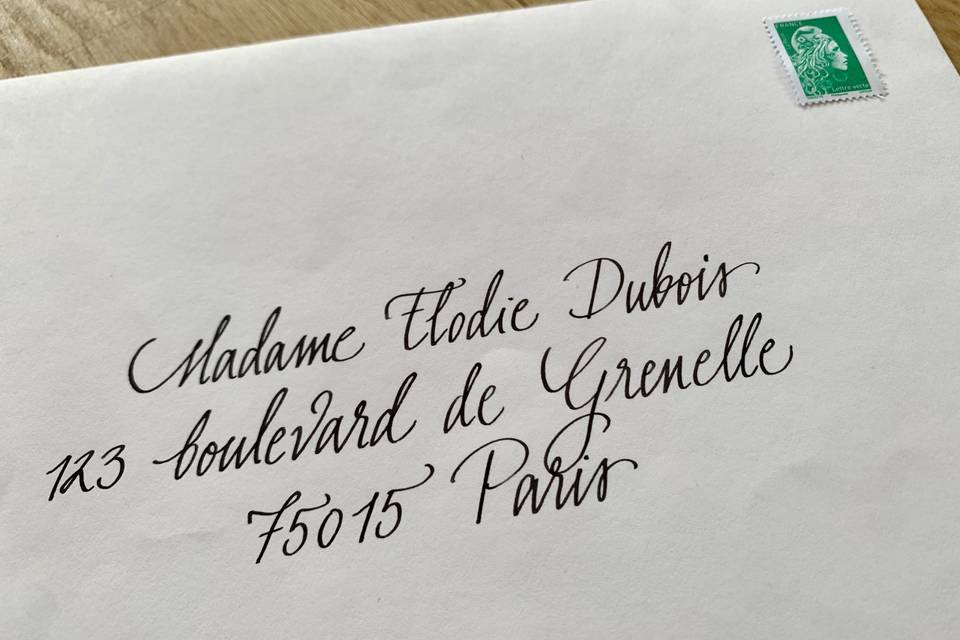 FRANCE
Lettre verte
Madame Elodie Dubois
123 boulevard de Grenelle
75015 Paris